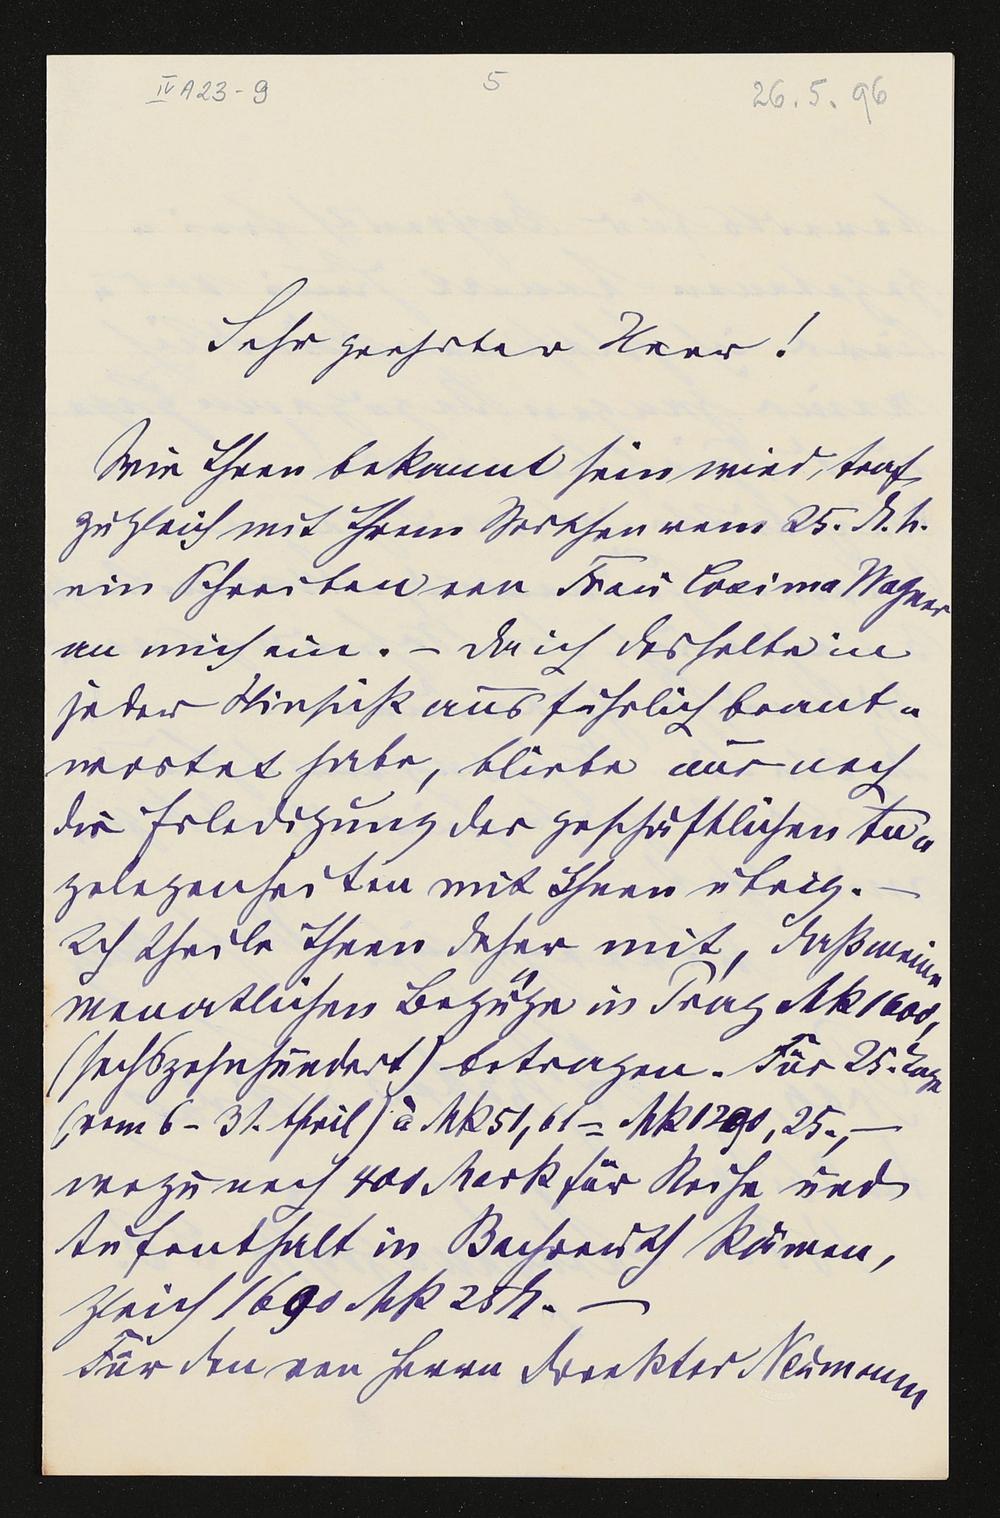 IV A23-9
5
26. 5. 96
Sehr geehrter Herr!
Wie Ihnen bekannt sein wird, traf
zugleich mit Ihrem vom 25. d. M.
ein Schreiben von Frau Cosima Wagner
an mich ein. – Da ich dasselbe in
jeder Hinsicht ausführlich beant-
wortet habe, bliebe nur noch
die Erledigung der geschäftlichen An-
gelegenheiten mit Ihnen übrig. –
Ich theile Ihnen daher mit, daß meine
monatlichen Bezüge in Prag Mk 1600,
(sechszehnhundert) betragen. Für 25. Tage
(vom 6 – 31. April) à Mk 51,61 = Mk 1290,25., –
wozu noch 400 Mark für Reise und
Aufenthalt in Bayreuth kämen,
gleich 1690 Mk 25 –
Für den von Herrn Direktor Neumann